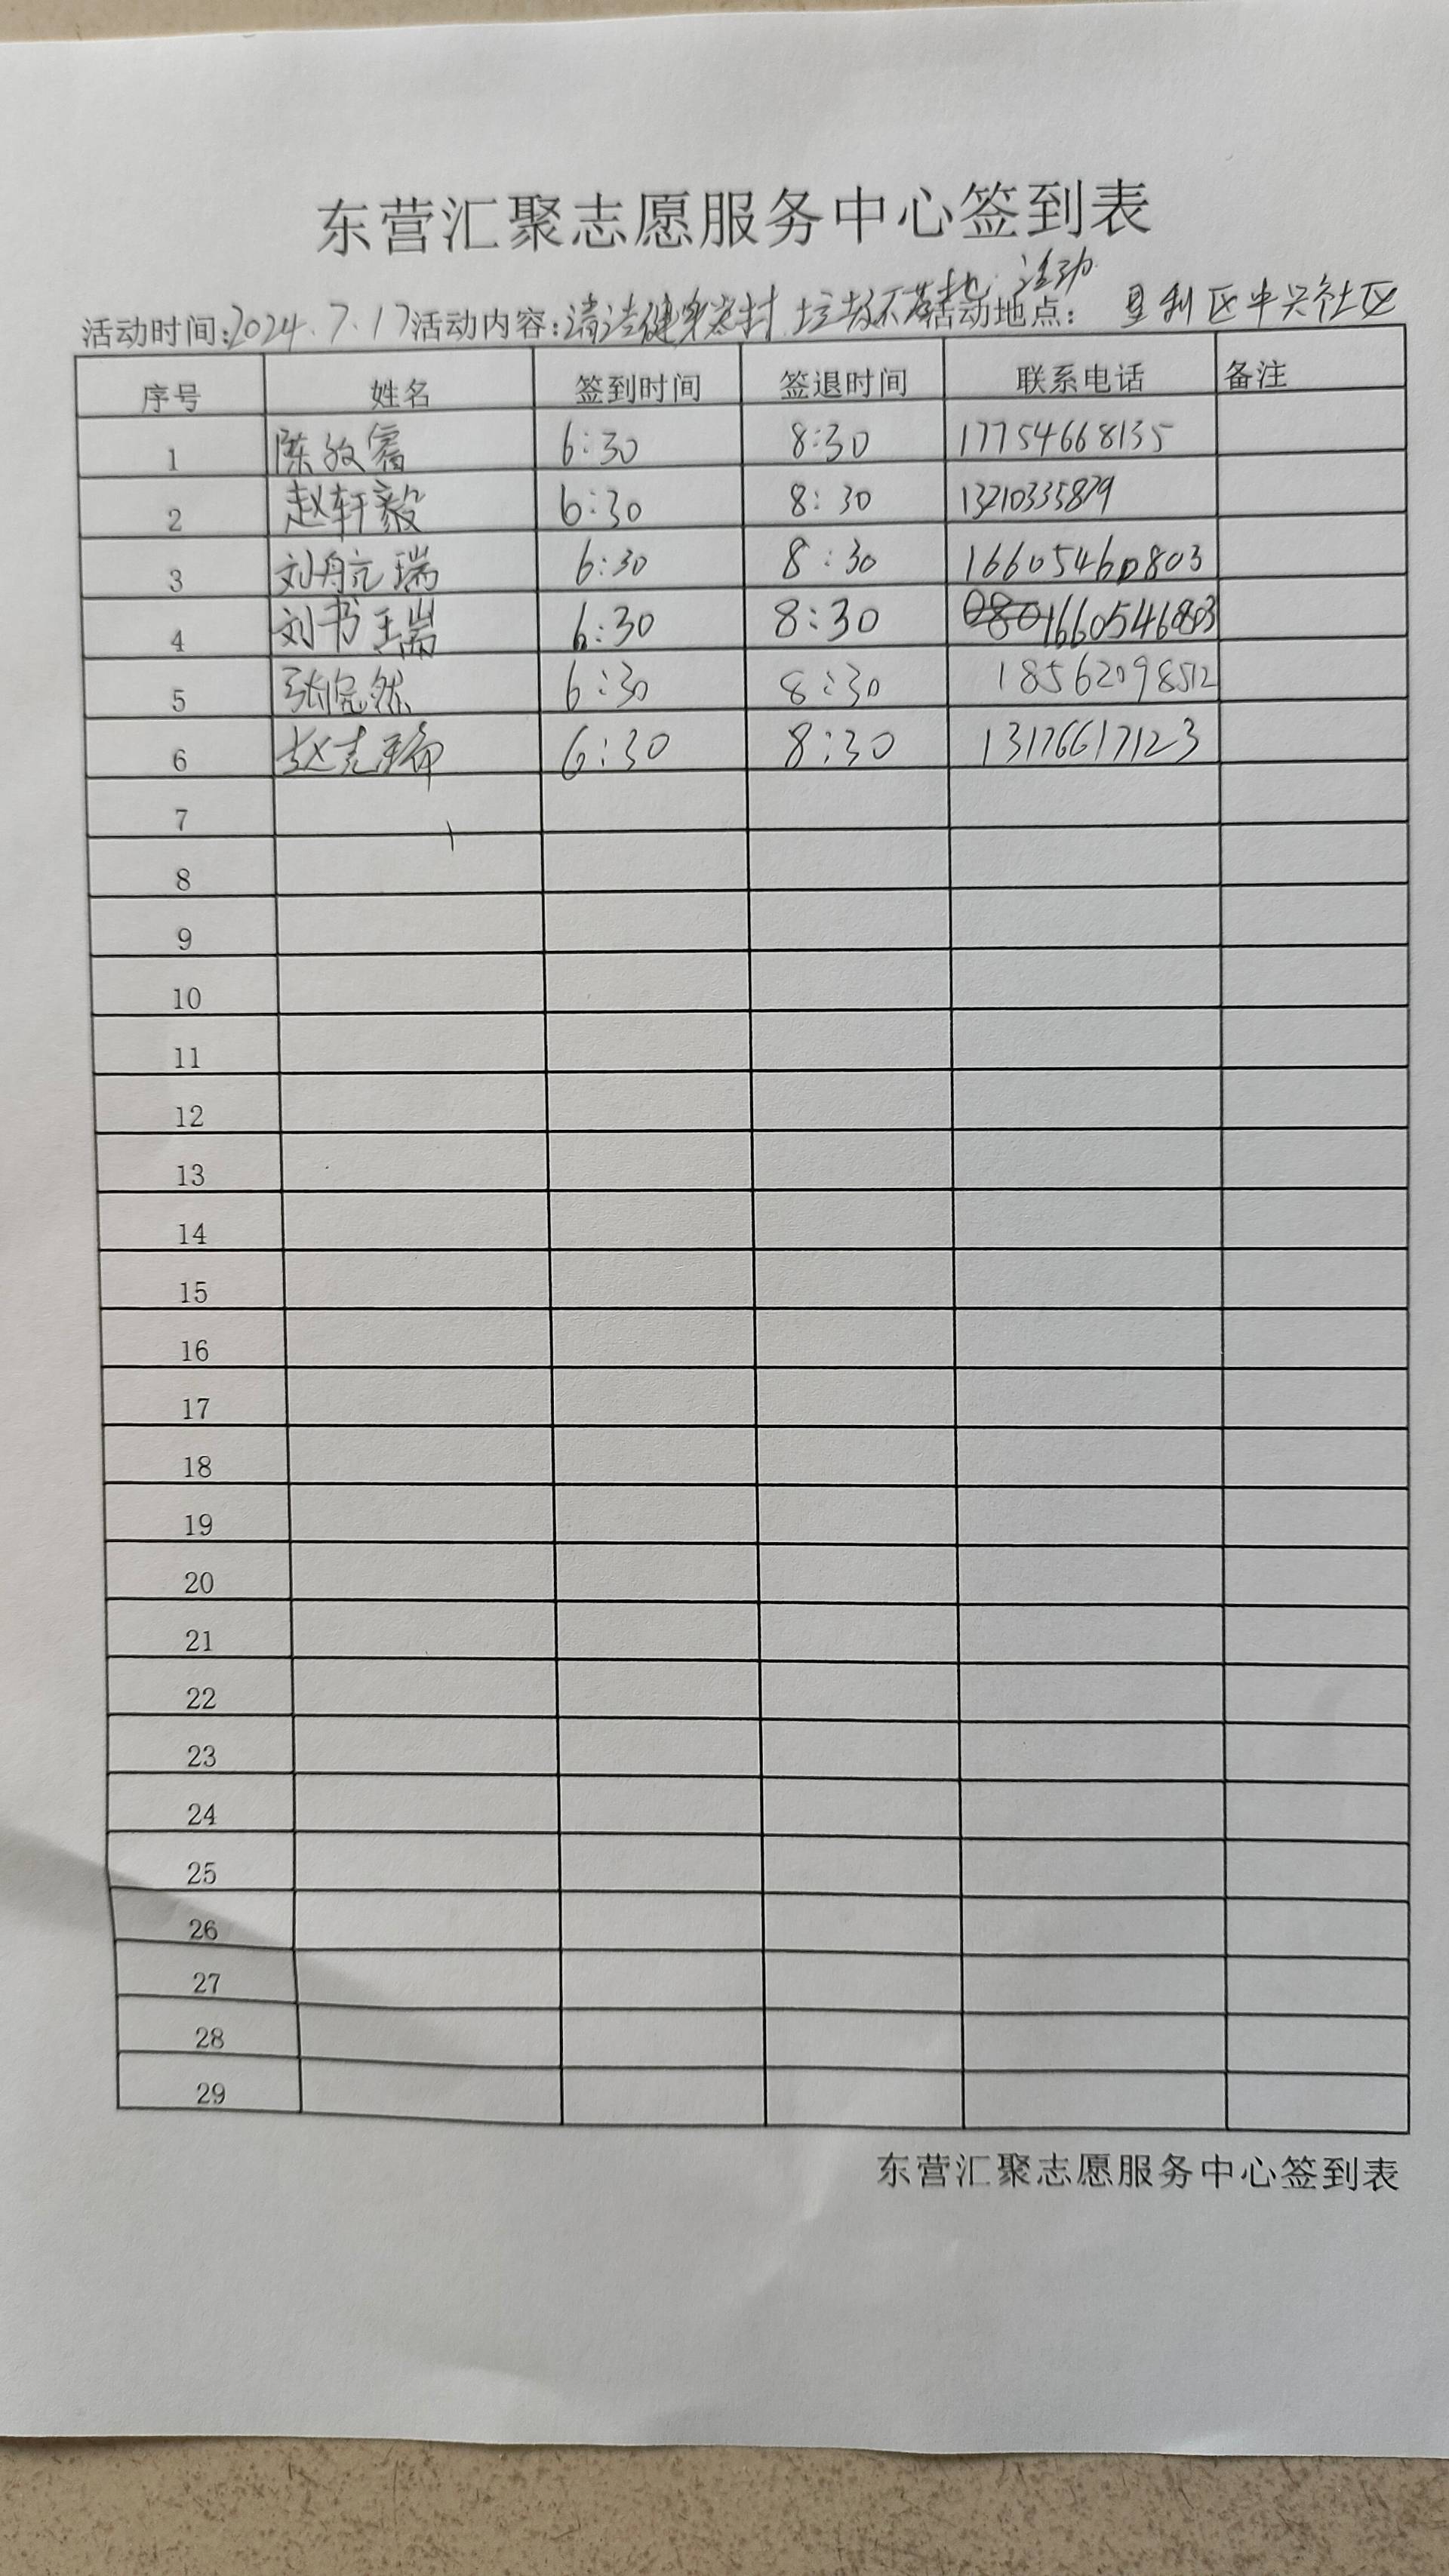 东营汇聚志愿服务中心签到表
活动时间:2024.7.17活动内容:清洁健身器材 垃圾不落地 活动 活动地点: 垦利区中兴社区
序号 姓名 签到时间 签退时间 联系电话 备注
1 陈 6:30 8:30 17754668135
2 赵轩毅 6:30 8:30 13210335879
3 刘航瑞 6:30 8:30 16605460803
4 刘书瑞 6:30 8:30 1660546803
5 张悦然 6:30 8:30 18562098512
6 赵 6:30 8:30 13176617123
7
8
9
10
11
12
13
14
15
16
17
18
19
20
21
22
23
24
25
26
27
28
29
东营汇聚志愿服务中心签到表